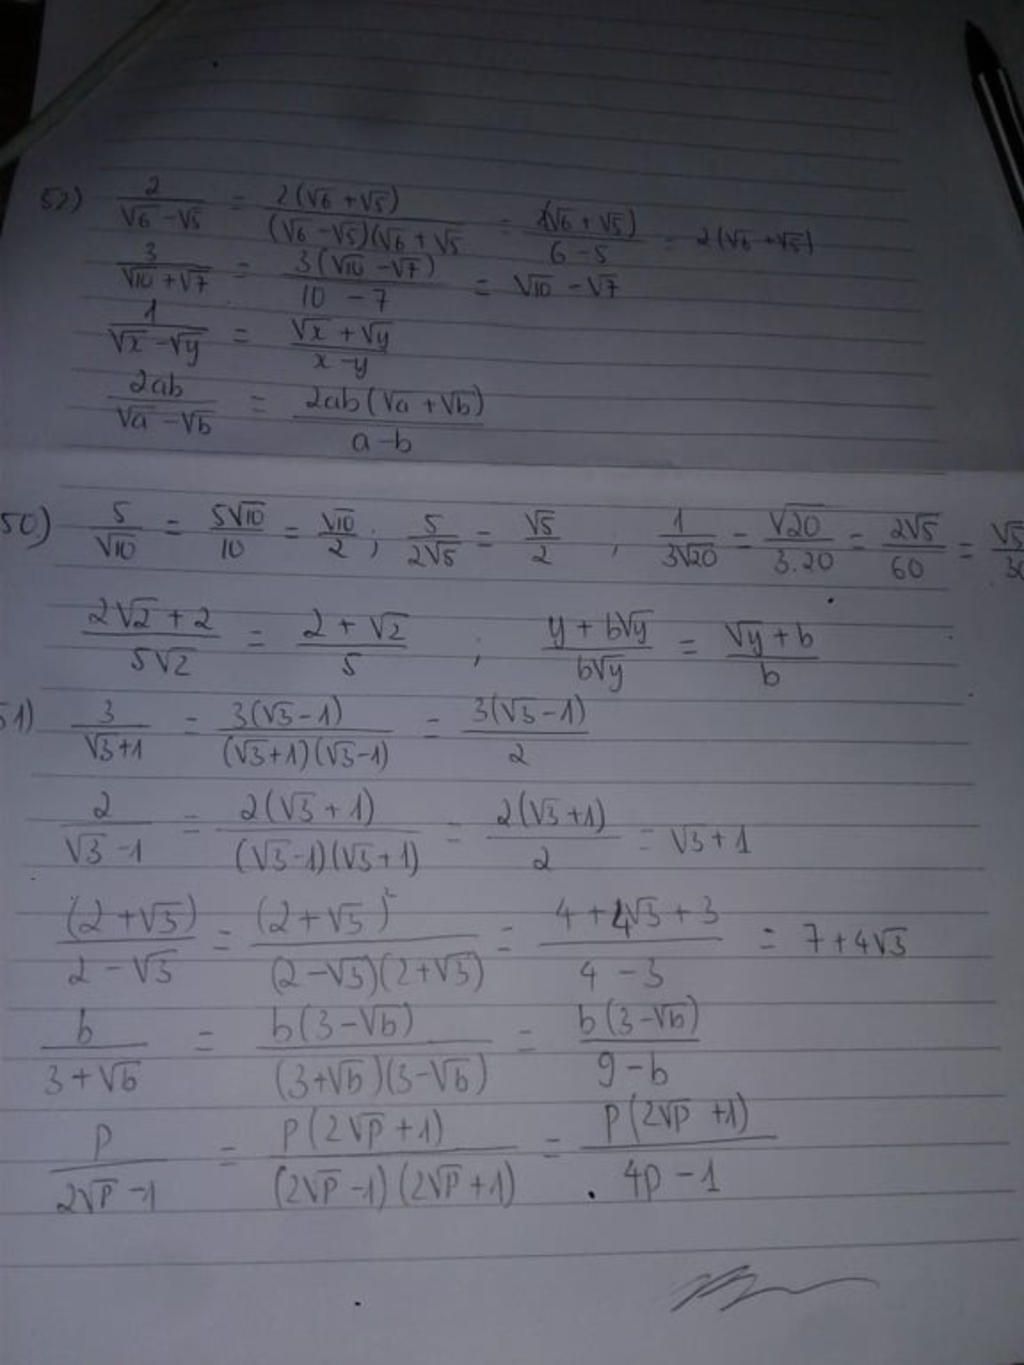 52) 2/(√6 - √5) = 2(√6 + √5)/((√6 - √5)(√6 + √5) = 2(√6 + √5)/(6 - 5) = 2(√6 + √5)
3/(√10 + √7) = 3(√10 - √7)/(10 - 7) = √10 - √7
1/(√x - √y) = (√x + √y)/(x - y)
2ab/(√a - √b) = 2ab(√a + √b)/(a - b)
50.) 5/√10 = 5√10/10 = √10/2 ; 5/(2√5) = √5/2 ; 1/(3√20) = √20/(3.20) = 2√5/60 = √5/30
(2√2 + 2)/(5√2) = (2 + √2)/5 ; (y + b√y)/(b√y) = (√y + b)/b
51) 3/(√3 + 1) = 3(√3 - 1)/((√3 + 1)(√3 - 1)) = 3(√3 - 1)/2
2/(√3 - 1) = 2(√3 + 1)/((√3 - 1)(√3 + 1)) = 2(√3 + 1)/2 = √3 + 1
(2 + √3)/(2 - √3) = (2 + √3)²/((2 - √3)(2 + √3)) = (4 + 4√3 + 3)/(4 - 3) = 7 + 4√3
b/(3 + √b) = b(3 - √b)/((3 + √b)(3 - √b)) = b(3 - √b)/(9 - b)
p/(2√p - 1) = p(2√p + 1)/((2√p - 1)(2√p + 1)) = p(2√p + 1)/(4p - 1)